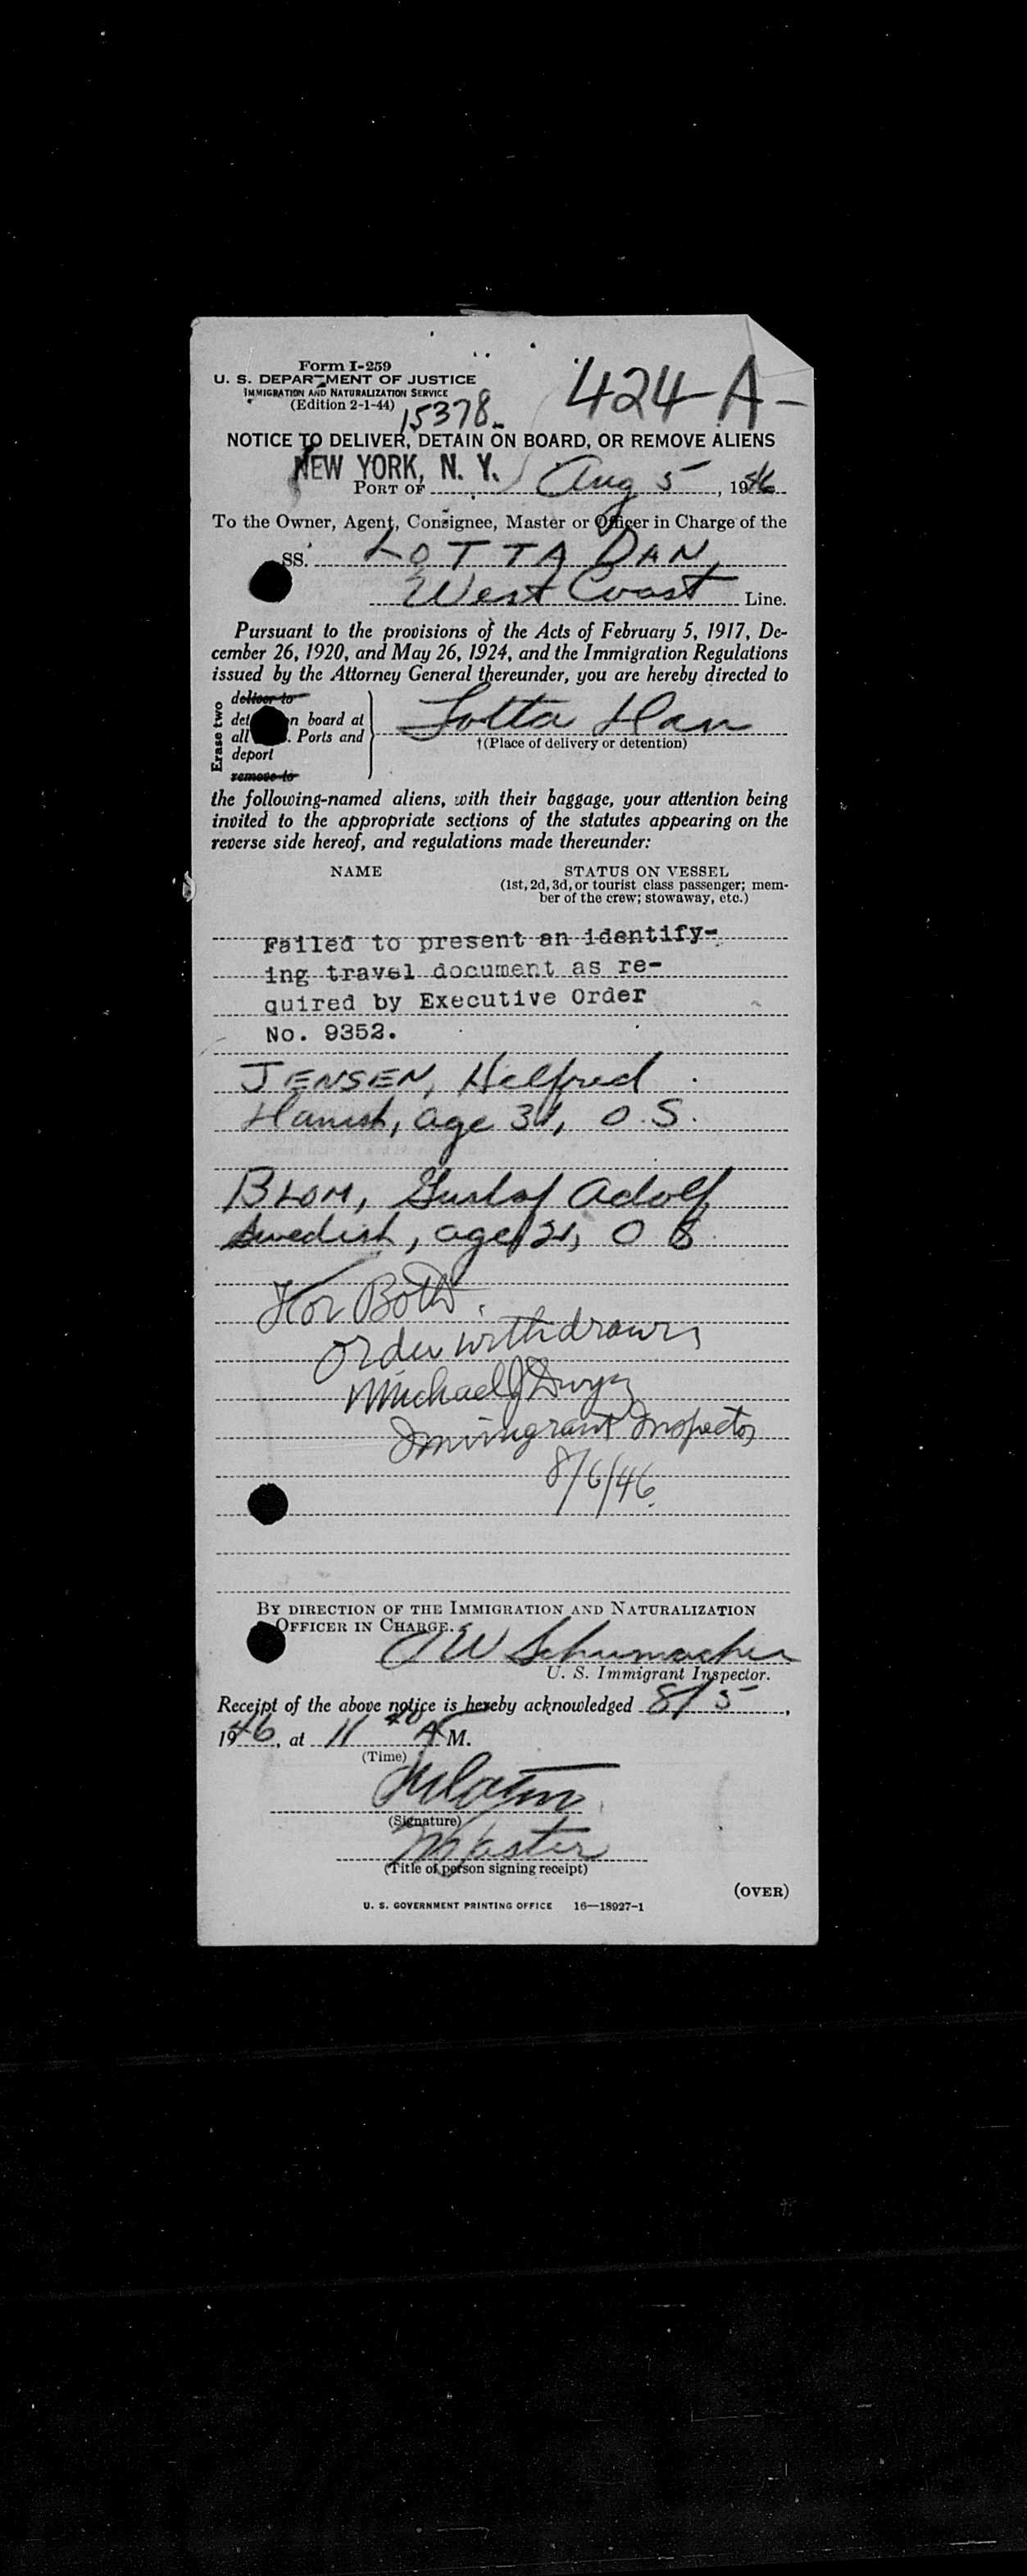 Form I-259
U. S. DEPARTMENT OF JUSTICE
IMMIGRATION AND NATURALIZATION SERVICE
(Edition 2-1-44)
15378
424-A-
NOTICE TO DELIVER, DETAIN ON BOARD, OR REMOVE ALIENS
NEW YORK, N. Y.
PORT OF Aug 5, 1946
To the Owner, Agent, Consignee, Master or Officer in Charge of the
SS. LOTTA DAN,
West Coast Line.
Pursuant to the provisions of the Acts of February 5, 1917, De-
cember 26, 1920, and May 26, 1924, and the Immigration Regulations
issued by the Attorney General thereunder, you are hereby directed to
Erase two
deliver to
det n board at
all . Ports and
deport
remove to
Lotta Dan
†(Place of delivery or detention)
the following-named aliens, with their baggage, your attention being
invited to the appropriate sections of the statutes appearing on the
reverse side hereof, and regulations made thereunder:
NAME
STATUS ON VESSEL
(1st, 2d, 3d, or tourist class passenger; mem-
ber of the crew; stowaway, etc.)
Failed to present an identify-
ing travel document as re-
quired by Executive Order
No. 9352.
JENSEN, Helfred
Danish, age 31, O.S.
BLOM, Gustaf Adolf
Swedish, age 21, O S
For Both.
Order withdrawn
Michael J Dwyer
Immigrant Inspector
8/6/46.
BY DIRECTION OF THE IMMIGRATION AND NATURALIZATION
OFFICER IN CHARGE.
W Schumacher
U. S. Immigrant Inspector.
Receipt of the above notice is hereby acknowledged 8/5,
1946, at 11 40 A M.
(Time)
(Signature)
Master
(Title of person signing receipt)
(OVER)
U. S. GOVERNMENT PRINTING OFFICE 16—18927-1